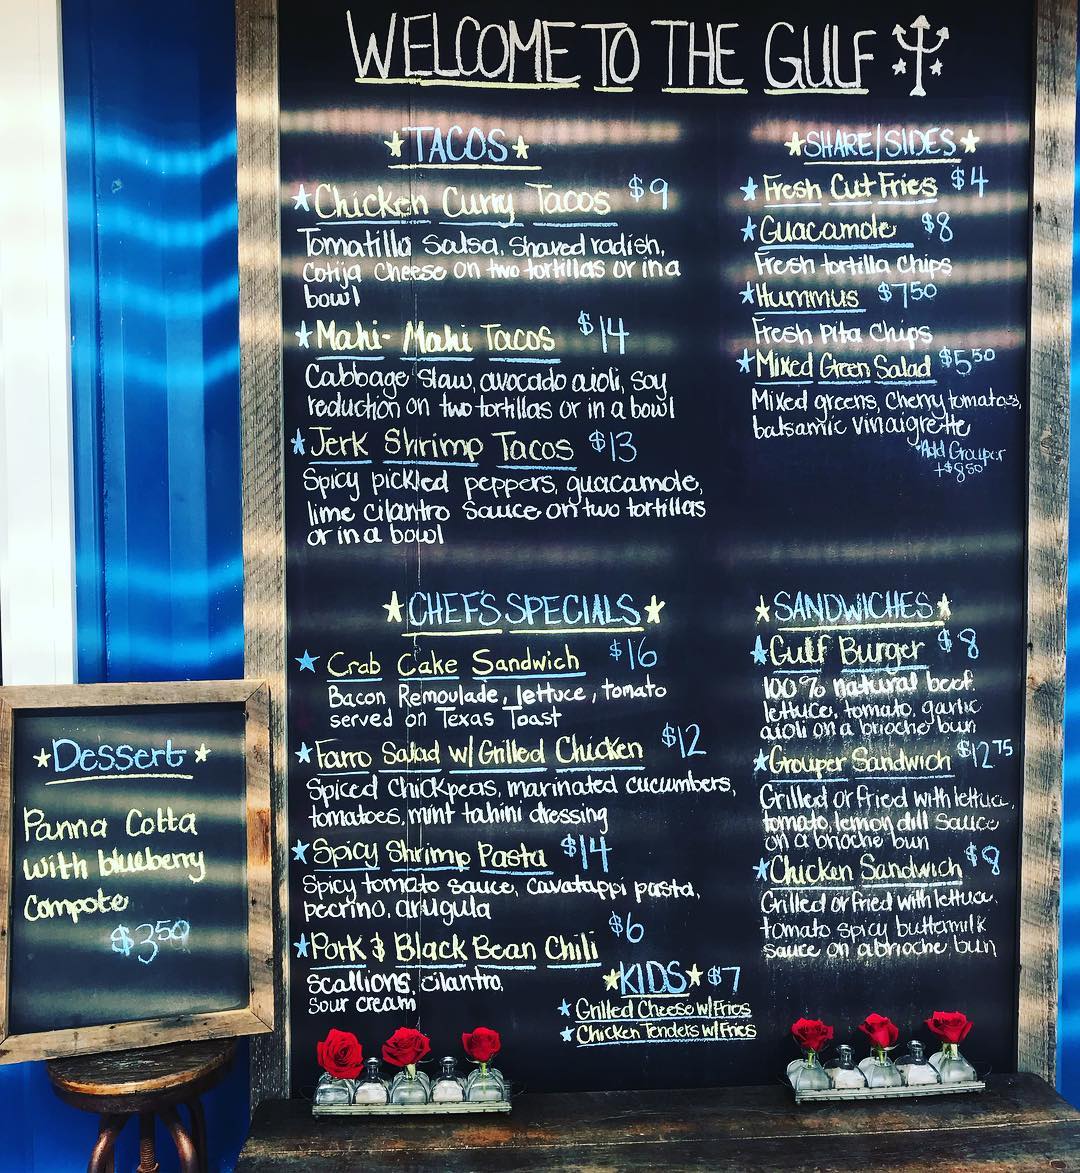 WELCOME TO THE GULF
★TACOS★
★Chicken Curry Tacos $9
Tomatillo Salsa, Shaved radish,
Cotija Cheese on two tortillas or in a
bowl
★Mahi-Mahi Tacos $14
Cabbage Slaw, avocado aioli, soy
reduction on two tortillas or in a bowl
★Jerk Shrimp Tacos $13
Spicy pickled peppers, guacamole,
lime cilantro sauce on two tortillas
or in a bowl
★SHARE/SIDES★
★Fresh Cut Fries $4
★Guacamole $8
Fresh tortilla Chips
★Hummus $7.50
Fresh Pita Chips
★Mixed Green Salad $5.50
Mixed greens, Cherry tomatoes,
balsamic vinaigrette
*Add Grouper
+$8.50
★CHEF'S SPECIALS★
★Crab Cake Sandwich $16
Bacon Remoulade, lettuce, tomato
served on Texas Toast
★Farro Salad w/Grilled Chicken $12
Spiced Chickpeas, marinated cucumbers,
tomatoes, mint tahini dressing
★Spicy Shrimp Pasta $14
Spicy tomato sauce, Cavatappi pasta,
pecrino, arugula
★Pork & Black Bean Chili $6
scallions, cilantro,
sour cream
★KIDS★ $7
★Grilled Cheese w/Fries
★Chicken Tenders w/Fries
★SANDWICHES★
★Gulf Burger $8
100% natural beef
lettuce, tomato, garlic
aioli on a brioche bun
★Grouper Sandwich $12.75
Grilled or fried with lettuce,
tomato, lemon dill sauce
on a brioche bun
★Chicken Sandwich
Grilled or fried with lettuce,
tomato spicy buttermilk
sauce on a brioche bun
★Dessert★
Panna Cotta
with blueberry
Compote
$3.50